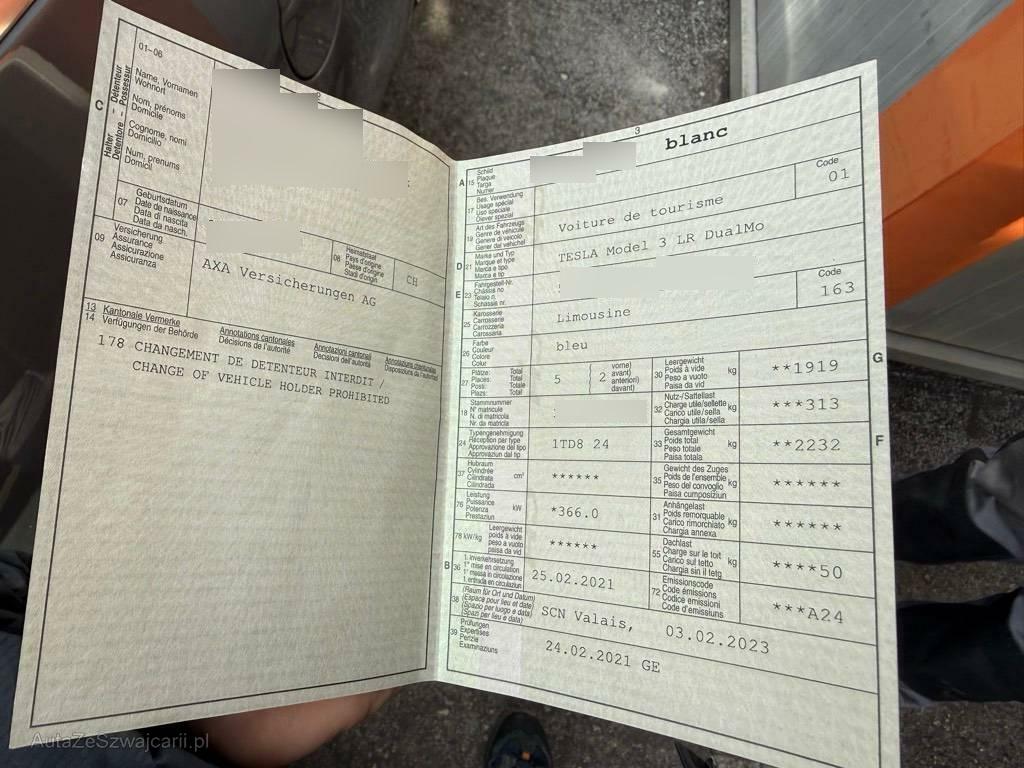 01-06
C
Halter - Détenteur
Detentore - Possessur
Name, Vornamen
Wohnort
Nom, prénoms
Domicile
Cognome, nomi
Domicilio
Num, prenums
Domicil
07
Geburtsdatum
Date de naissance
Data di nascita
Data da nasch.
08
Heimatstaat
Pays d'origine
Paese d'origine
Stadi d'origin
CH
09
Versicherung
Assurance
Assicurazione
Assicuranza
AXA Versicherungen AG
13 Kantonale Vermerke
14 Verfügungen der Behörde
Annotations cantonales
Décisions de l'autorité
Annotazioni cantonali
Decisioni dell'autorità
Annotaziuns chantunalas
Disposiziuns da l'autoritad
178 CHANGEMENT DE DETENTEUR INTERDIT /
CHANGE OF VEHICLE HOLDER PROHIBITED
3
blanc
A
15
Schild
Plaque
Targa
Numer
Code
01
17
Bes. Verwendung
Usage spécial
Uso speciale
Diever spezial
19
Art des Fahrzeugs
Genre de véhicule
Genere di veicolo
Gener dal vehichel
Voiture de tourisme
D
21
Marke und Typ
Marque et type
Marca e tipo
Marca e tip
TESLA Model 3 LR DualMo
E
23
Fahrgestell-Nr.
Châssis no
Telaio n.
Schassis nr.
Code
163
25
Karosserie
Carrosserie
Carrozzeria
Carossaria
Limousine
26
Farbe
Couleur
Colore
Colur
bleu
27
Plätze: Total
Places: Total
Posti: Totale
Plazs: Total
5
2
vorne)
avant)
anteriori)
davant)
G
30
Leergewicht
Poids à vide
Peso a vuoto
Paisa da vid
kg
**1919
18
Stammnummer
N° matricule
N. di matricola
Nr. da matricla
32
Nutz-/Sattellast
Charge utile/sellette
Carico utile/sella
Chargia utila/sella
kg
***313
24
Typengenehmigung
Réception par type
Approvazione del tipo
Approvaziun dal tip
1TD8 24
F
33
Gesamtgewicht
Poids total
Peso totale
Paisa totala
kg
**2232
37
Hubraum
Cylindrée
Cilindrata
Cilindrada
cm³
******
35
Gewicht des Zuges
Poids de l'ensemble
Peso del convoglio
Paisa cumposiziun
kg
******
76
Leistung
Puissance
Potenza
Prestaziun
kW
*366.0
31
Anhängelast
Poids remorquable
Carico rimorchiato
Chargia annexa
kg
******
78 kW/kg
Leergewicht
poids à vide
peso à vuoto
paisa da vid
******
55
Dachlast
Charge sur le toit
Carico sul tetto
Chargia sin il tetg
kg
****50
B
36
1. Inverkehrsetzung
1re mise en circulation
1a messa in circolazione
1. entrada en circulaziun
25.02.2021
72
Emissionscode
Code émissions
Codice emissioni
Code d'emissiuns
***A24
38
(Raum für Ort und Datum)
(Espace pour lieu et date)
(Spazio per luogo e data)
(Spazi per lieu e data)
SCN Valais, 03.02.2023
39
Prüfungen
Expertises
Perizie
Examinaziuns
24.02.2021 GE
AutaZeSzwajcarii.pl